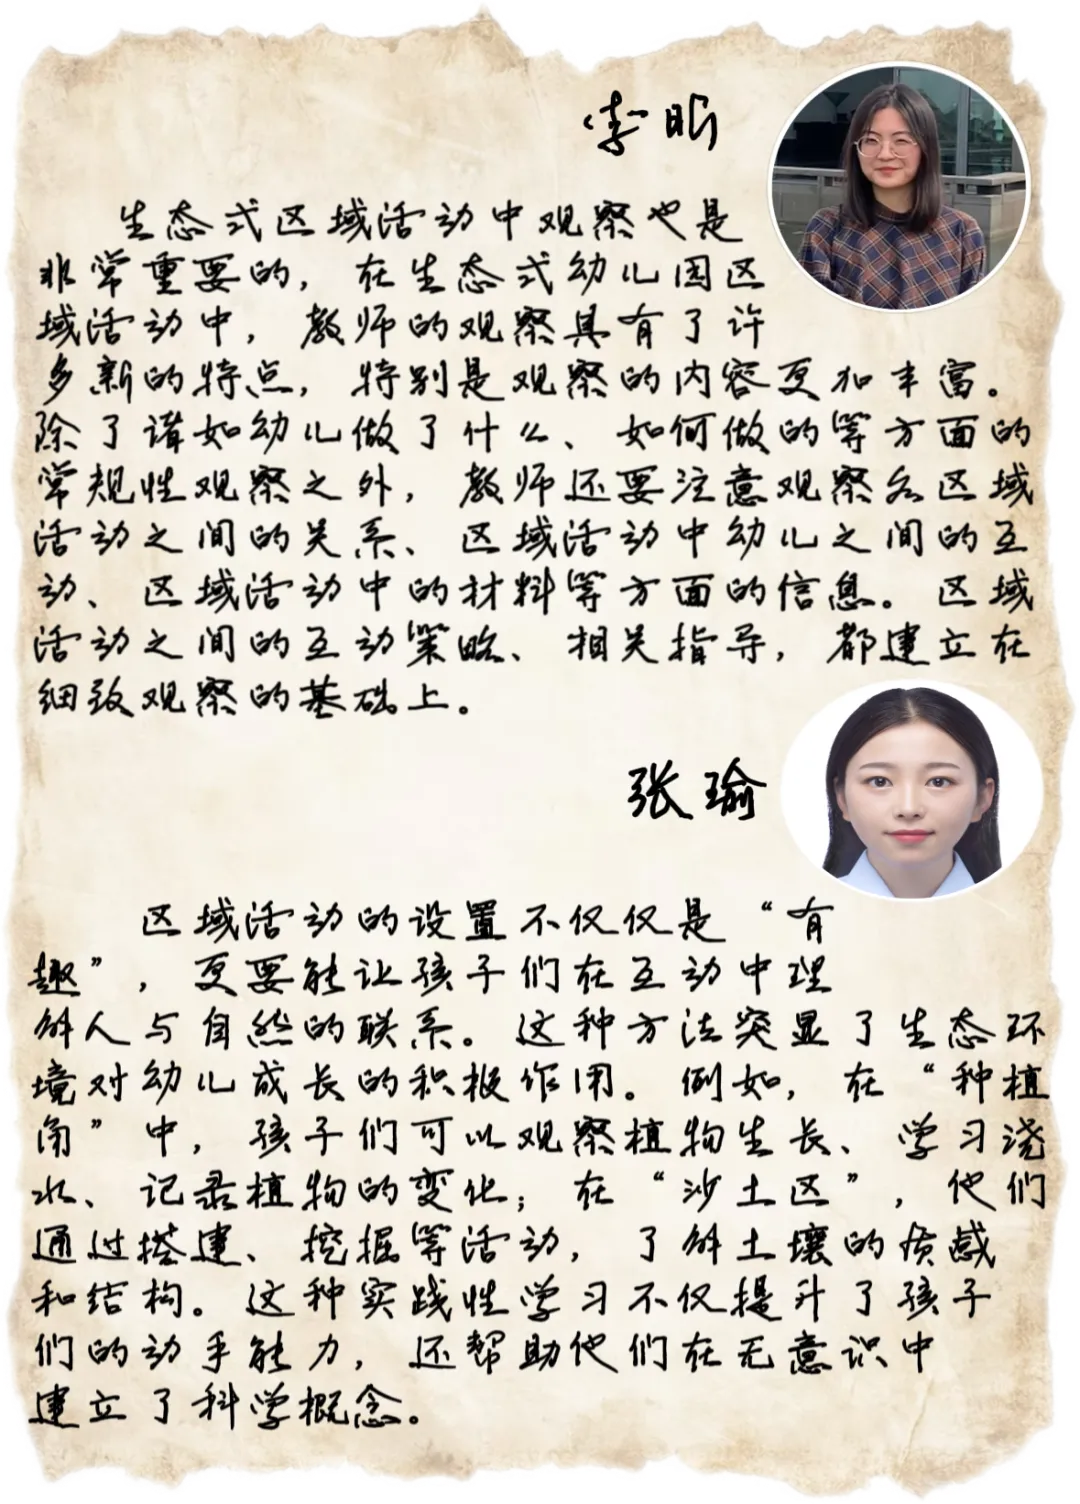 李昕
生态式区域活动中观察也是
非常重要的，在生态式幼儿园区
域活动中，教师的观察具有了许
多新的特点，特别是观察的内容更加丰富。
除了诸如幼儿做了什么、如何做的等方面的
常规性观察之外，教师还要注意观察各区域
活动之间的关系、区域活动中幼儿之间的互
动、区域活动中的材料等方面的信息。区域
活动之间的互动策略、相关指导，都建立在
细致观察的基础上。
张瑜
区域活动的设置不仅仅是“有
趣”，更要能让孩子们在互动中理
解人与自然的联系。这种方法突显了生态环
境对幼儿成长的积极作用。例如，在“种植
角”中，孩子们可以观察植物生长、学习浇
水、记录植物的变化；在“沙土区”，他们
通过搭建、挖掘等活动，了解土壤的质感
和结构。这种实践性学习不仅提升了孩子
们的动手能力，还帮助他们在无意识中
建立了科学概念。